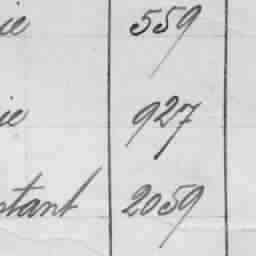 ie 559
ie 927
stant 2059